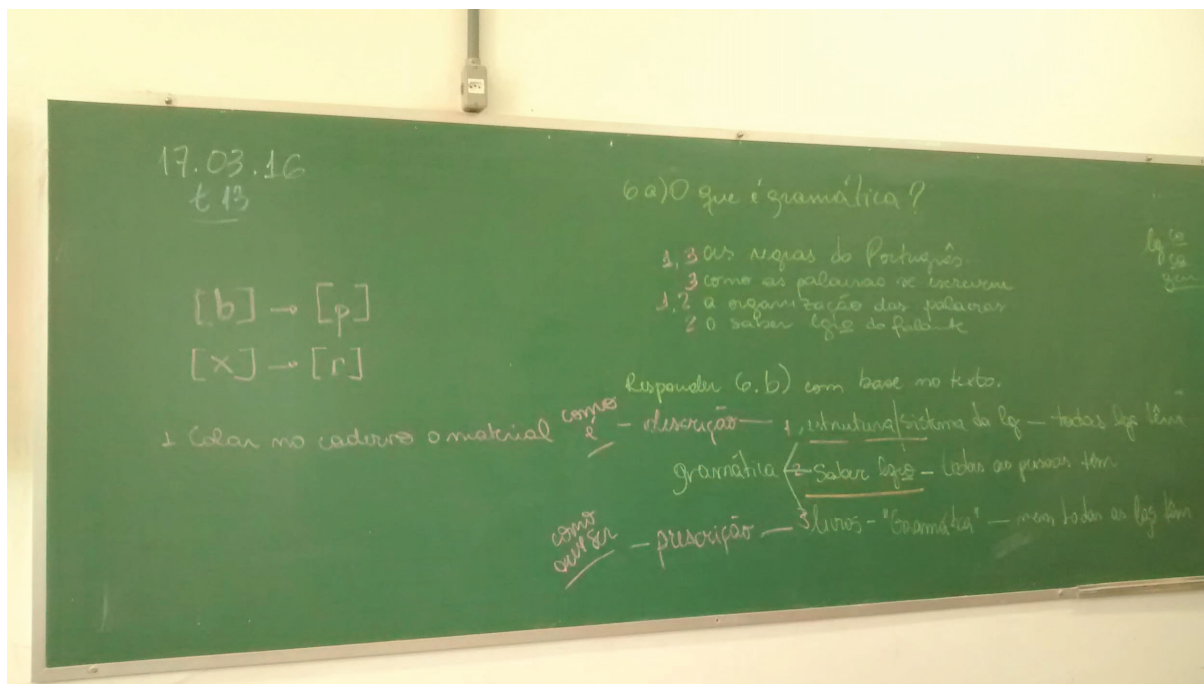 17.03.16
t 13
[b] → [p]
[x] → [r]
1 Colar no caderno o material
6 a) O que é gramática?
1, 3 as regras do Português.
3 como as palavras se escrevem
1, 2 a organização das palavras
2 o saber lgco do falante
Responder 6. b) com base no texto.
como é – descrição – 1, estrutura/sistema da lg – todas lgs têm
gramática 2 Saber lgco – todas as pessoas têm
como deve ser – prescrição – 3 livros – "Gramática" – nem todas as lgs têm
lg